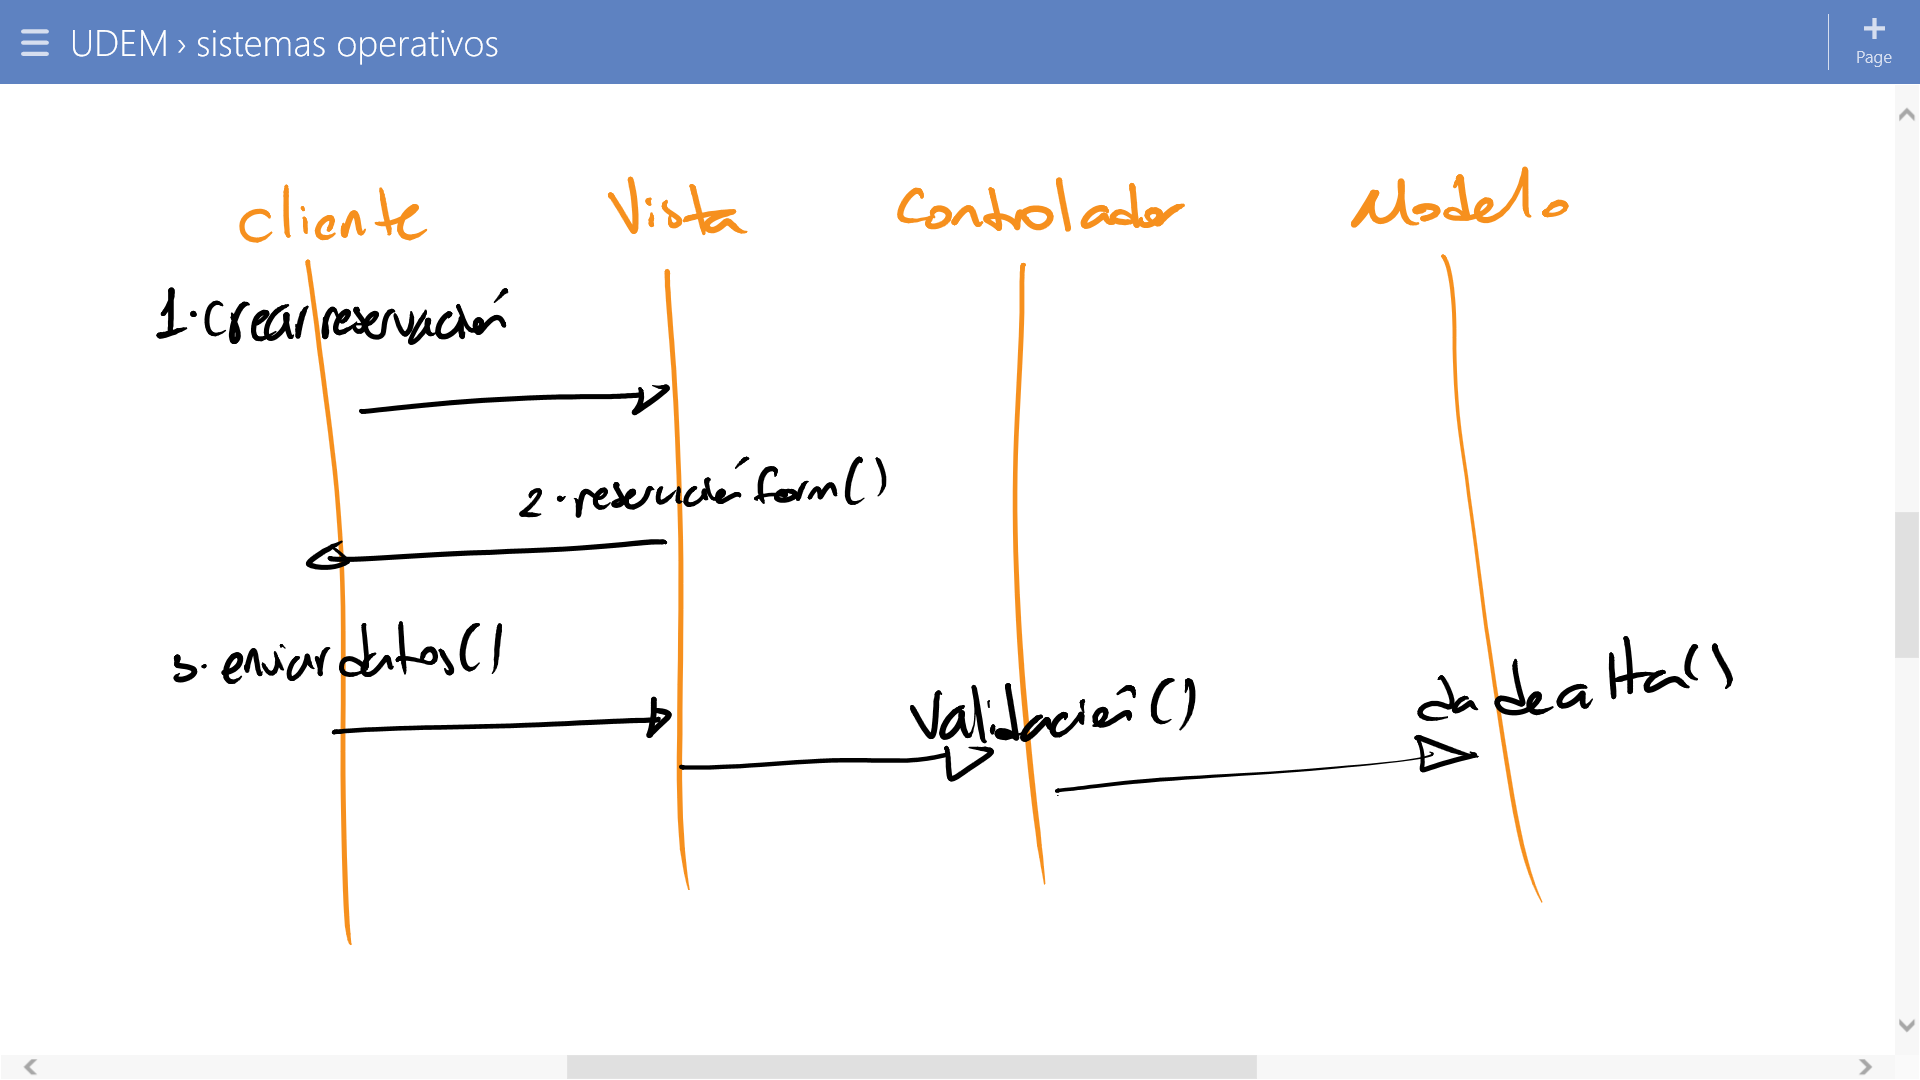 UDEM › sistemas operativos
Page
cliente
Vista
Controlador
Modelo
1. crear reservación
2. reservación form()
3. enviar datos()
Validación()
da de alta()